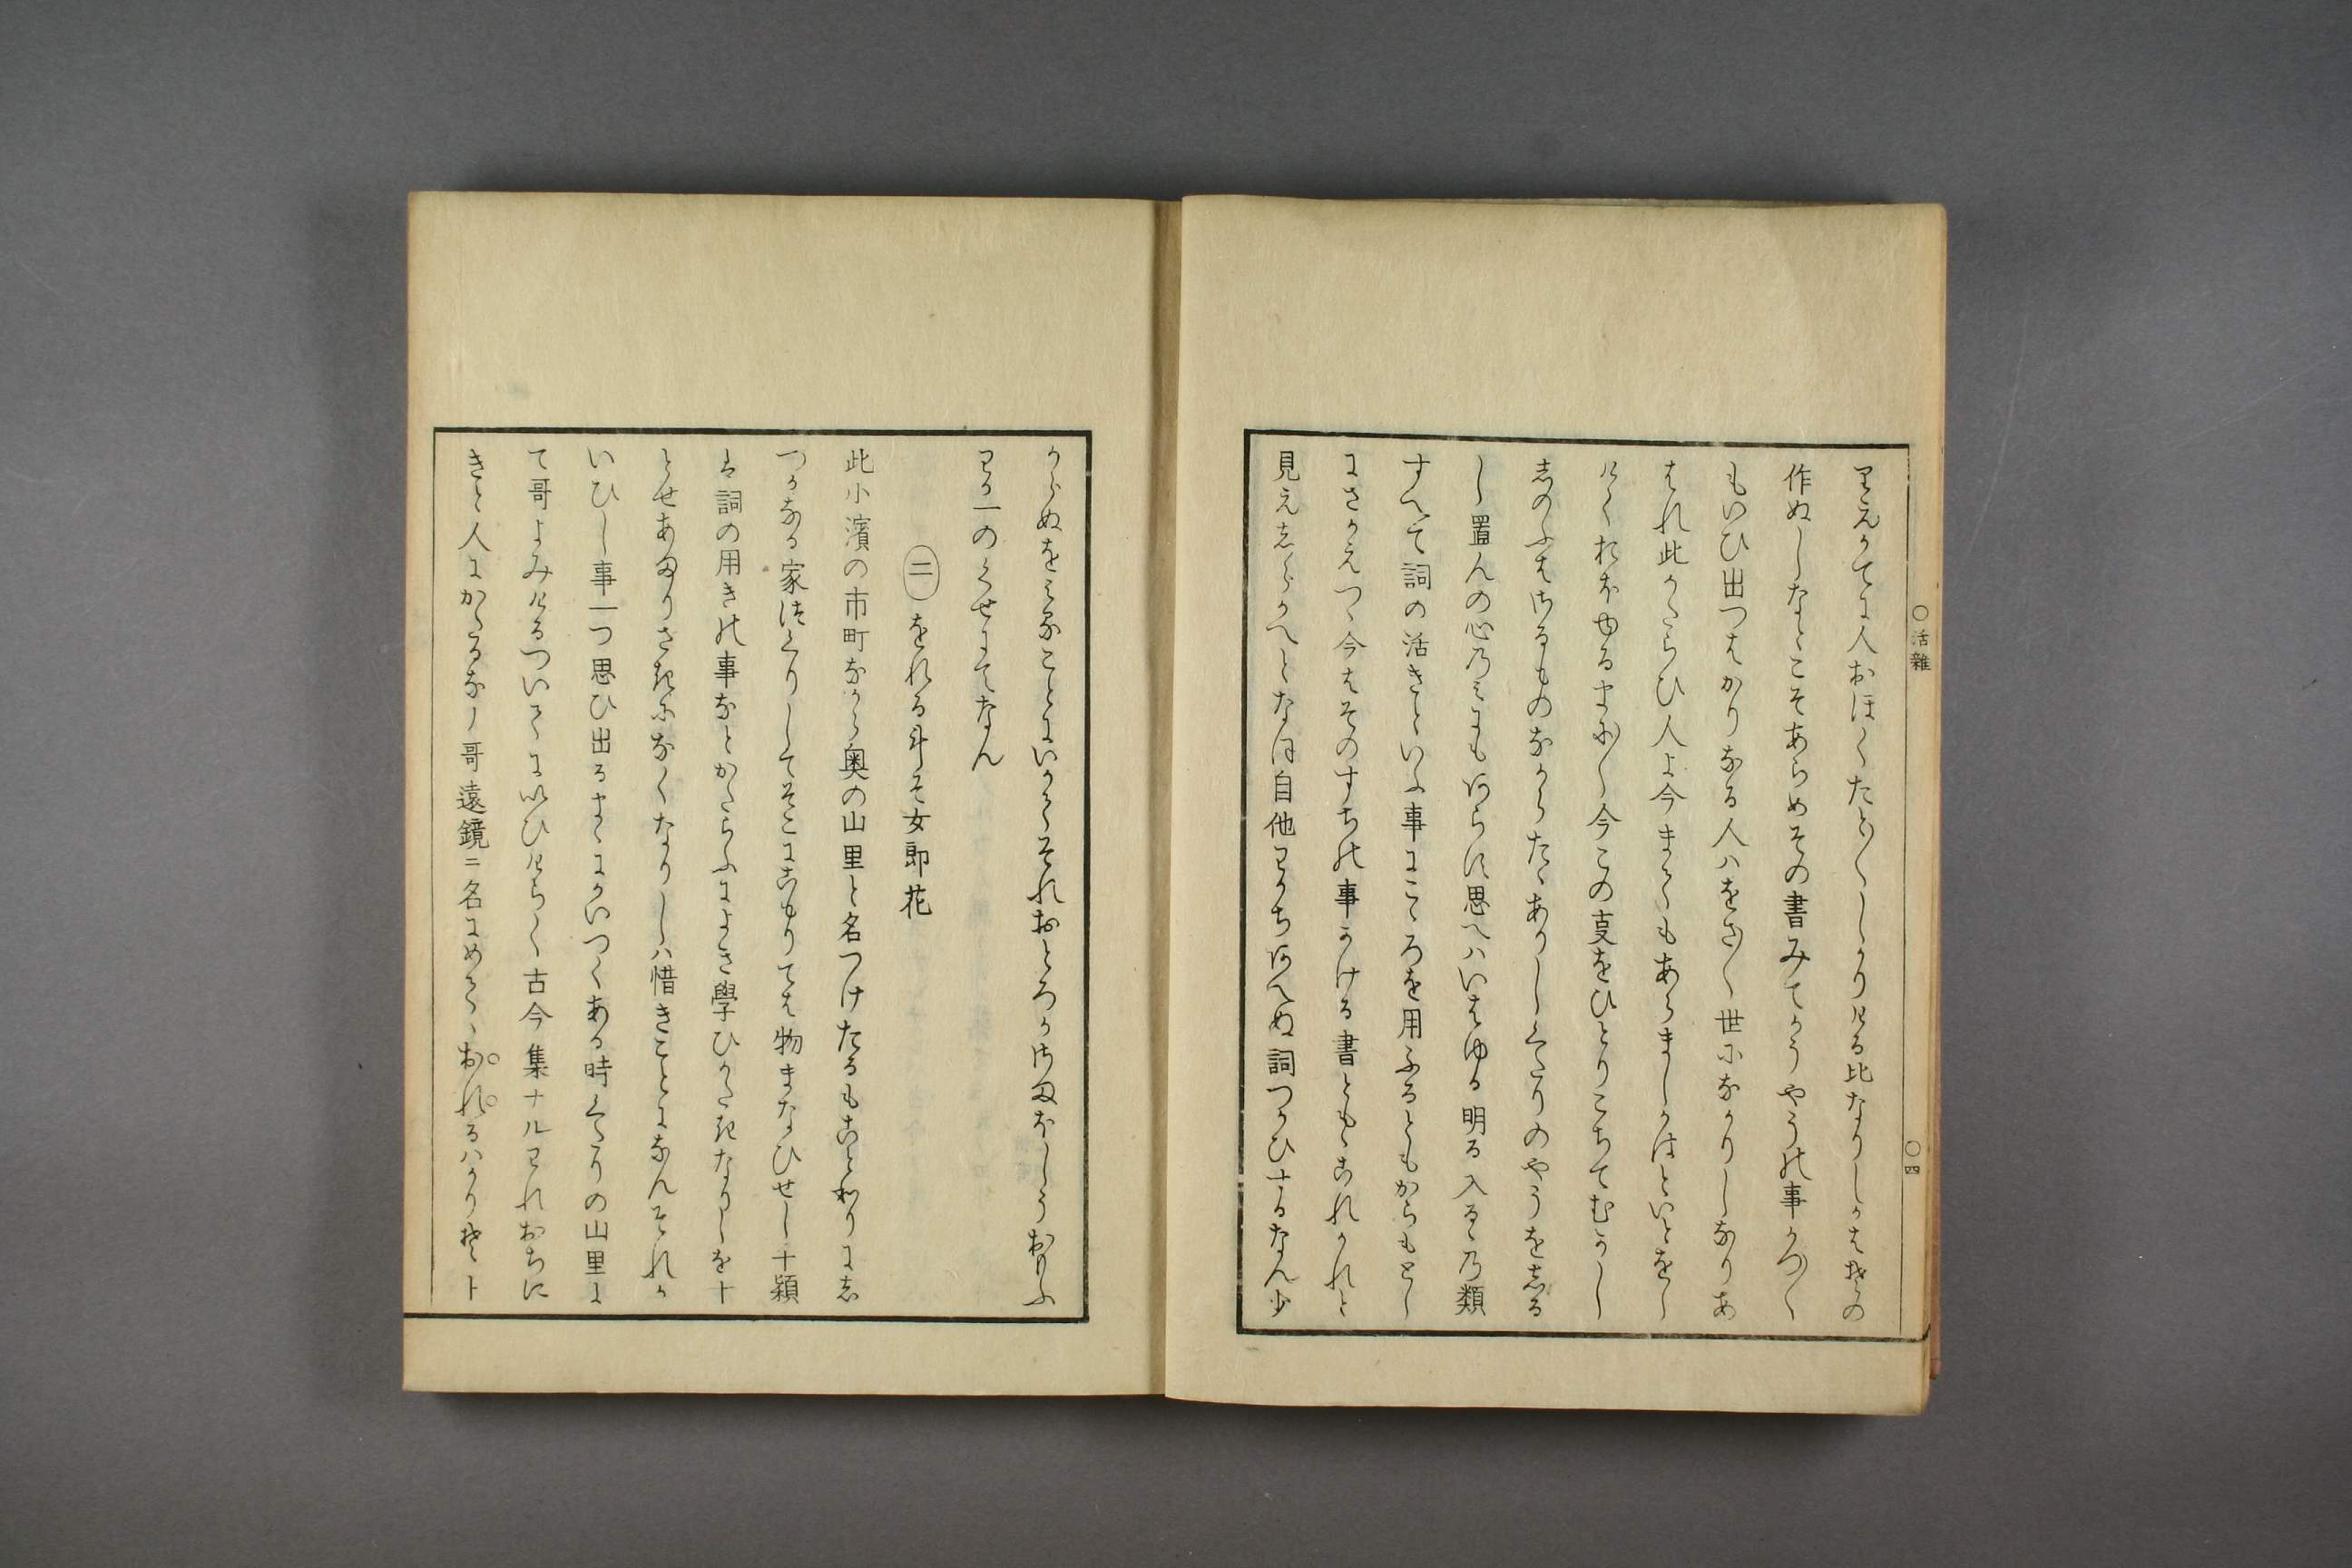 きえかてに人おほくたと〳〵しかりける比なりしかはそその
作ぬしなとこそあらめその書みてかうやうの事かつ〳〵
もいひ出つはかりなる人ハをさ〳〵世になかりしなりあ
はれ此かたらひ人よ今まてもあらましかはといとをし
けくおほゆるまに〳〵今この㕝をひとりこちてむかし
しのふはさるものなからたゝありしくたりのやうをしる
し置んの心のみにもあらす思へハいはゆる明る入るゝ乃類
すへて詞の活きといふ事にこゝろを用ふるともからもとし
にさかえつゝ今はそのすちの事かける書ともゝこれかれと
見えしらかへとなほ自他わかちあへぬ詞つかひするなん少
○活雜
○四
からぬをみることにいかてそれおとろかさまほしうおもふ
わか一のくせにてなん
㊁をれる斗そ女郎花
此小濱の市町なから奥の山里と名つけたるもことわりにし
つかなる家はとりしてそこにこもりては物まなひせし十穎
は詞の用きの事なとかたらふによき學ひかたきなりしを十
とせあまりさきになくなりしハ惜きことになんそれか
いひし事一つ思ひ出るまゝにかいつくある時くたりの山里に
て哥よみけるついてにいひけらく古今集ナルワれおちに
きと人にかたるなノ哥遠鏡ニ名にめてゝおれるハかりそト